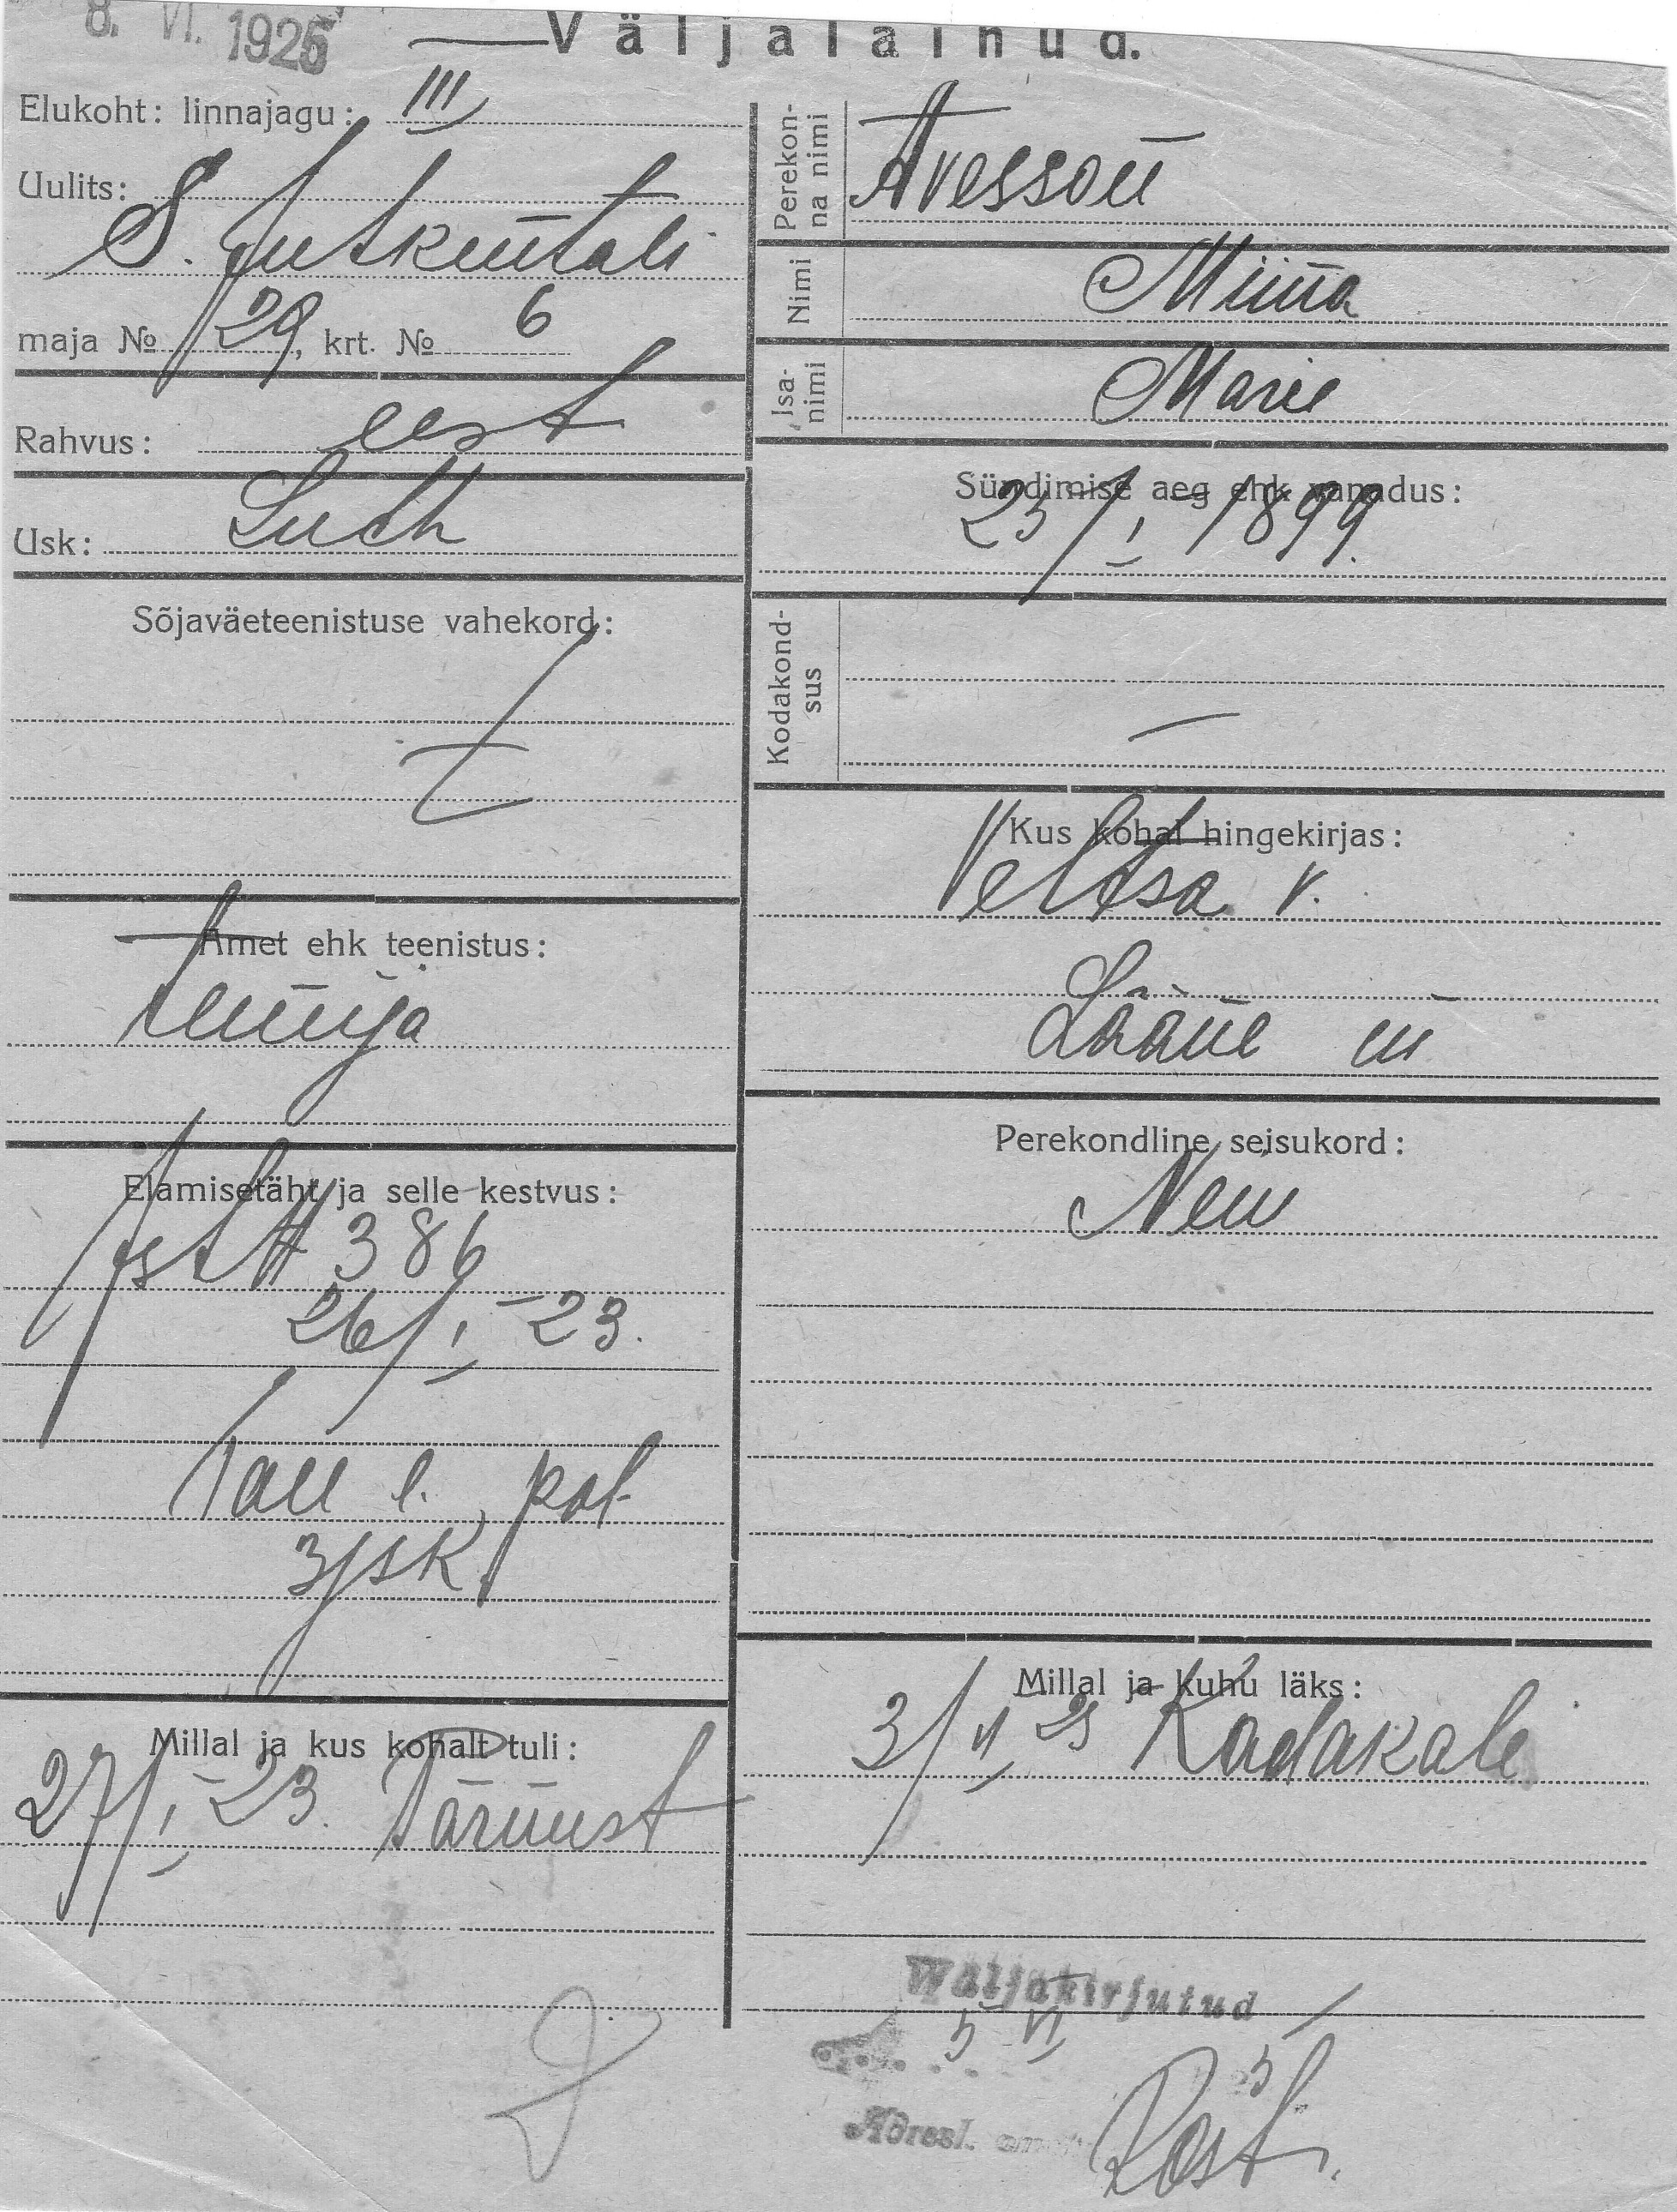 8. VI. 1925
Väljaläinud.
Elukoht: linnajagu: III
Uulits:
S. Juhkentali
maja № 29, krt. № 6
Rahvus: eest
Usk: Luth
Sõjaväeteenistuse vahekord:
Amet ehk teenistus:
teenija
Elamisetäht ja selle kestvus:
386
26/I - 23.
Tall l. pol
3 jsk.
Millal ja kus kohalt tuli:
27/I - 23. Pärnust
Perekonna nimi
Avesson
Nimi
Miina
Isanimi
Marie
Sündimise aeg ehk vanadus:
25/I - 1899.
Kodakondsus
—
Kus kohal hingekirjas:
Veltsa v.
Lääne m
Perekondline seisukord:
Neiu
Millal ja kuhu läks:
3/VI 25 Kadakale
Wäljakirjutud
5 VI 5
Adresl.